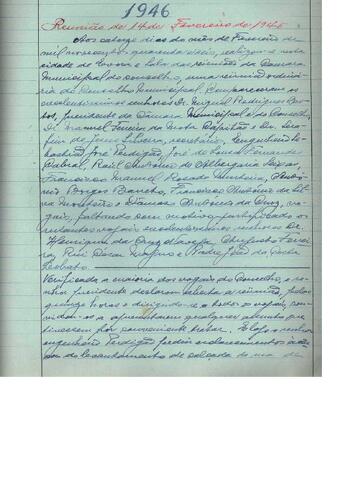 1946
Reunião de 14 de Fevereiro de 1946
Aos catorze dias do mês de Fevereiro de
mil novecentos quarenta e seis, realizou-se nesta
cidade de e sala das reuniões da Câmara
Municipal do concelho, uma reunião ordiná-
ria do Conselho Municipal. Compareceram os
excelentíssimos senhores Dr. Miguel Rodrigues Bas-
tos, presidente da Câmara Municipal do Concelho,
Dr. Manuel Ferreira da Costa e Dr. Sera-
fim de Jesus Silveira, secretário, Engenheiro Se-
bastião José Perdigão, José de Sousa Fernandes
Cabral, Raúl António de Albergaria
Francisco Manuel Rosado António
Borges Barreto, Francisco António da Sil-
va e Dâmaso António da Cruz, vo-
gais, faltando sem motivo justificado os
restantes vogais excelentíssimos senhores Dr.
Henrique da Cruz Augusto Ferrei-
ra, Rui e André José da Costa
Verificada a maioria dos vogais do Conselho, o se-
nhor presidente declarou aberta a reunião, pelas
quinze horas e dirigindo-se a todos os vogais, con-
vidou-os a apresentarem qualquer assunto que
tivessem por conveniente tratar. E logo o senhor
engenheiro Perdigão pediu esclarecimentos àcer-
ca do levantamento da calçada da rua de